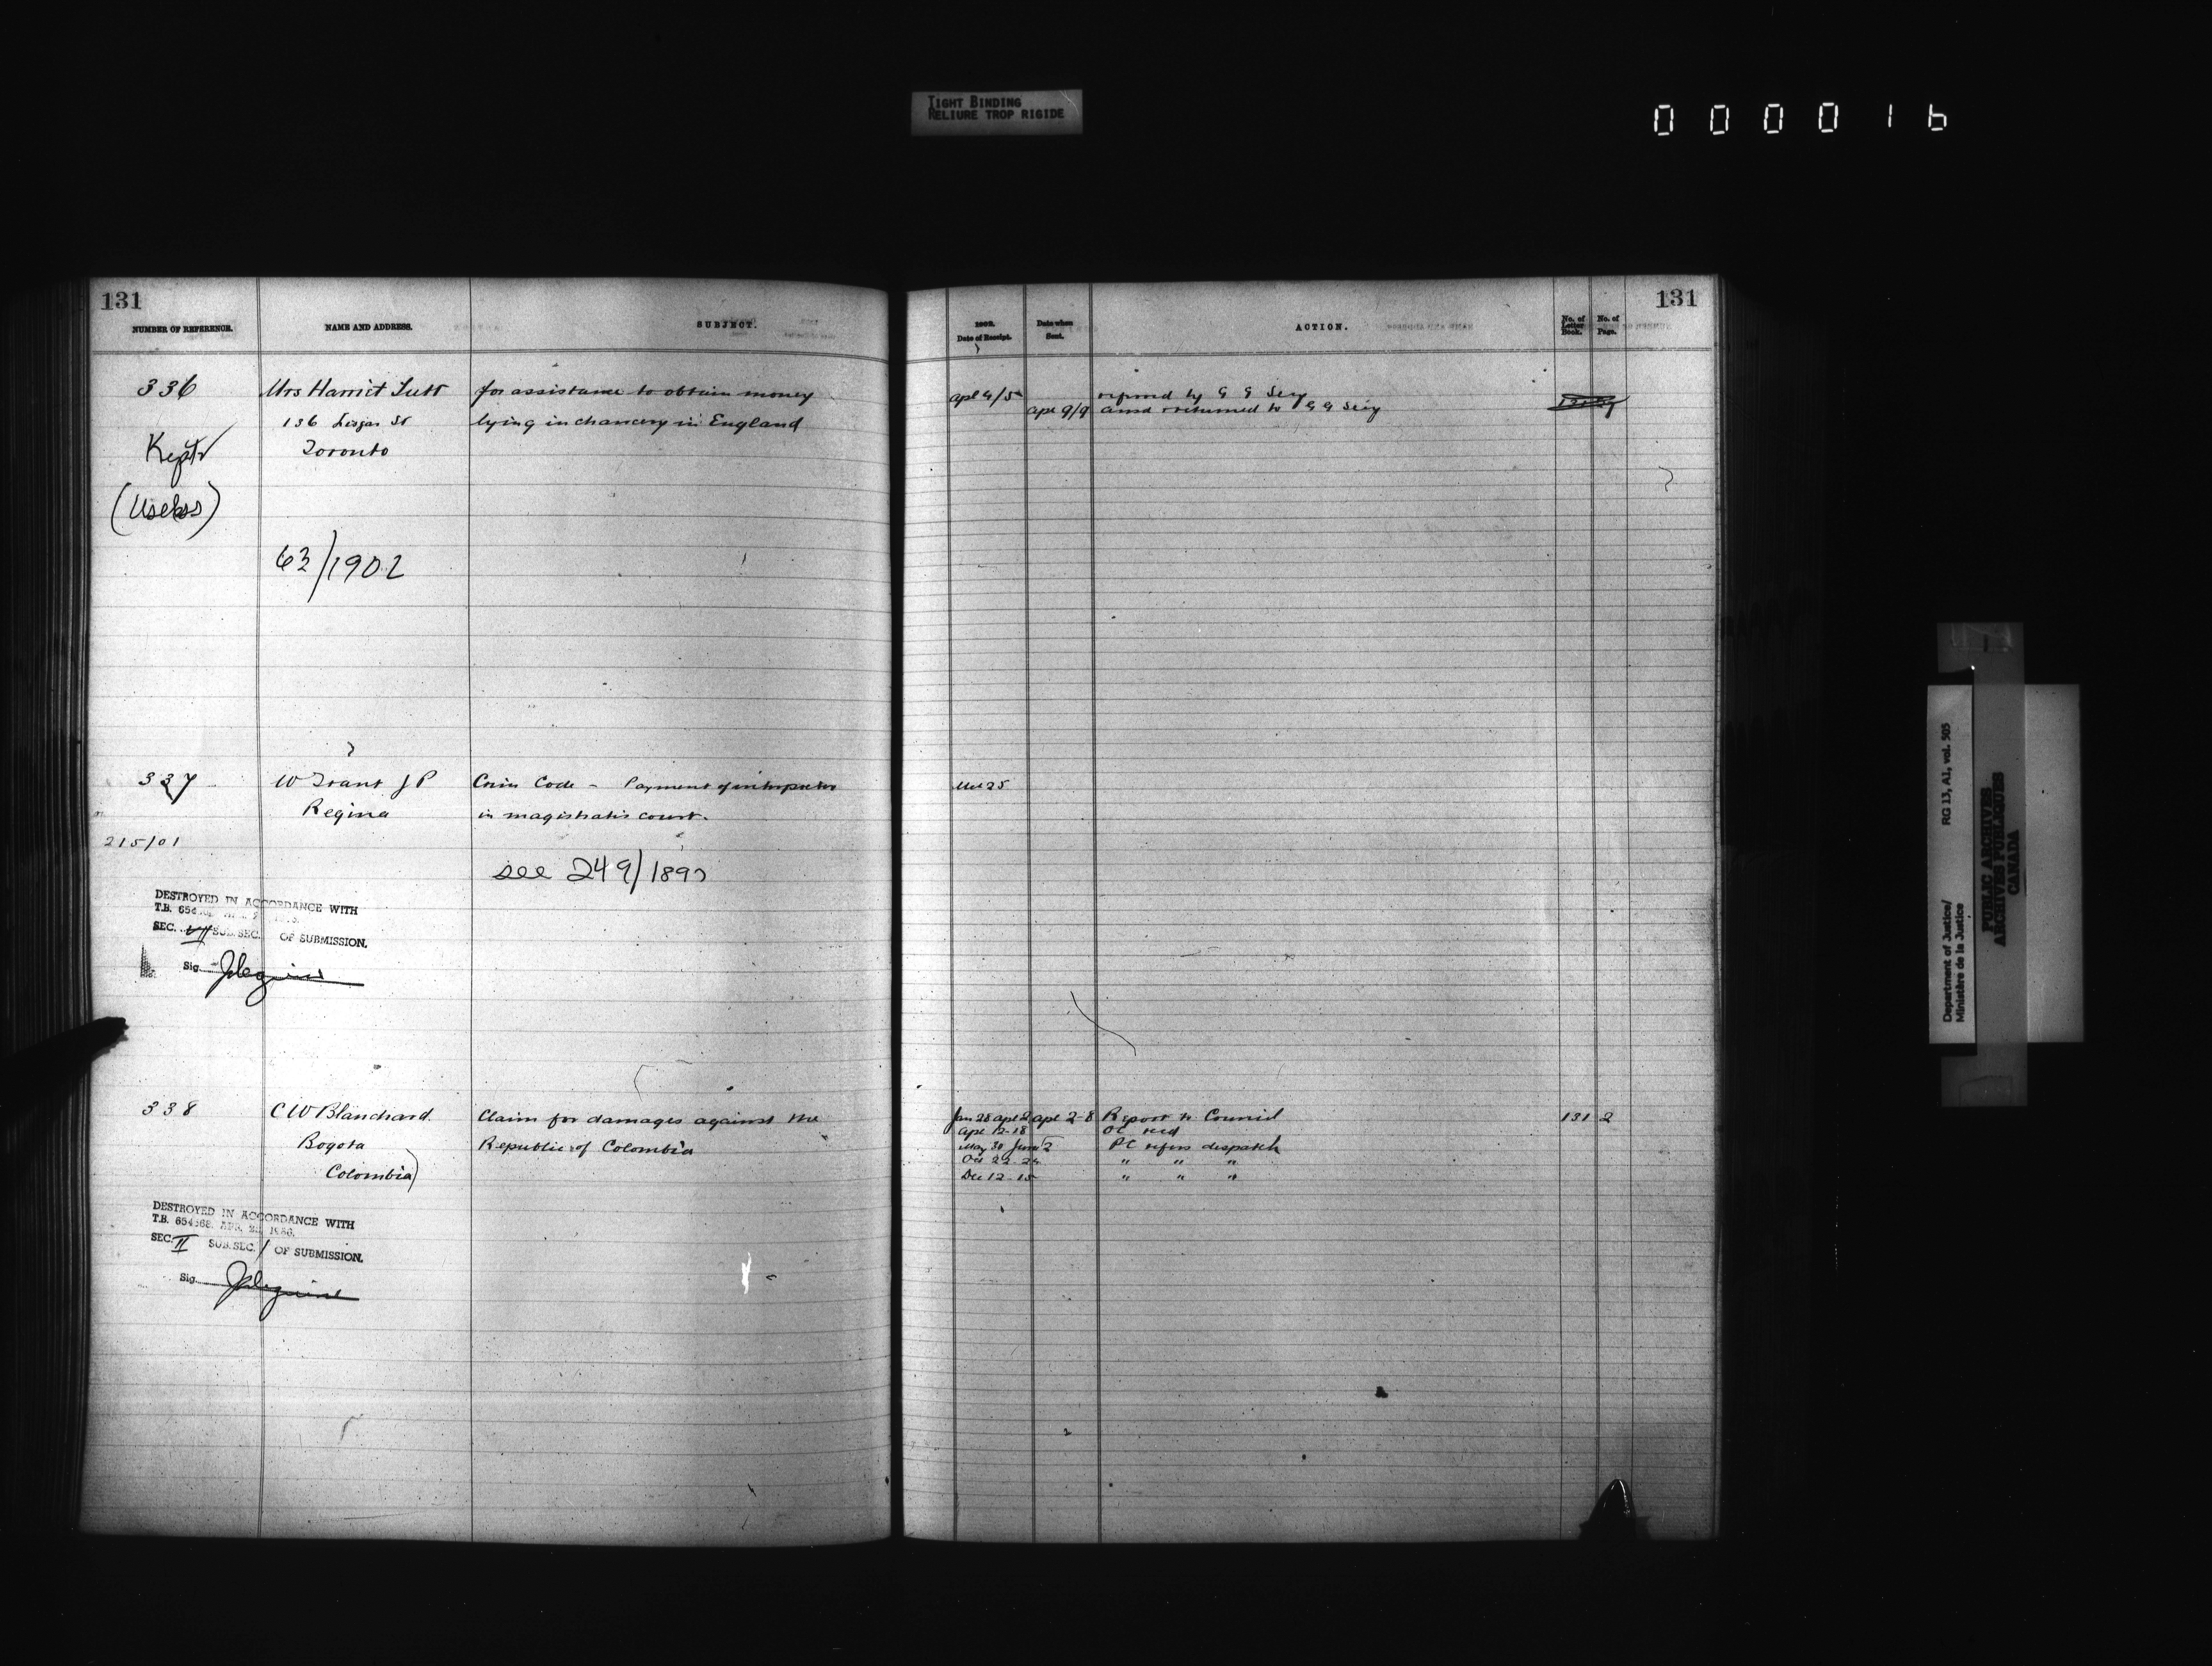 TIGHT BINDING
RELIURE TROP RIGIDE
000016
131
NUMBER OF REFERENCE.
NAME AND ADDRESS.
SUBJECT.
336
Mrs Harriet Tutt
for assistance to obtain money
136 Lisgar St
lying in chancery in England
Toronto
Kept
(Useless)
63/1902
337
W Trant J P
Crim Code - Payment of interpreter
Regina
in magistrate's court.
215/01
see 249/1897
DESTROYED IN ACCORDANCE WITH
T.B.
SEC. VII SUB. SEC. OF SUBMISSION.
Sig.
338
C W Blanchard
Claim for damages against the
Bogota
Republic of Colombia
Colombia)
DESTROYED IN ACCORDANCE WITH
T.B. 654368, APR.
SEC. II SUB. SEC. / OF SUBMISSION.
Sig.
131
1902.
Date of Receipt.
Date when
Sent.
ACTION.
No. of
Letter
Book.
No. of
Page.
apl 4/5
referred by G G Secy
apl 9/9
and returned to G G Secy
Jan 28 apl 2
apl 2-8
Report to Council
131
2
apl 12-18
OC recd
May 30 June 2
PC refers despatch
Oct 22-24
" " "
Dec 12-15
" " "
Department of Justice/
Ministère de la Justice
RG 13, A1, vol. 505
PUBLIC ARCHIVES
ARCHIVES PUBLIQUES
CANADA